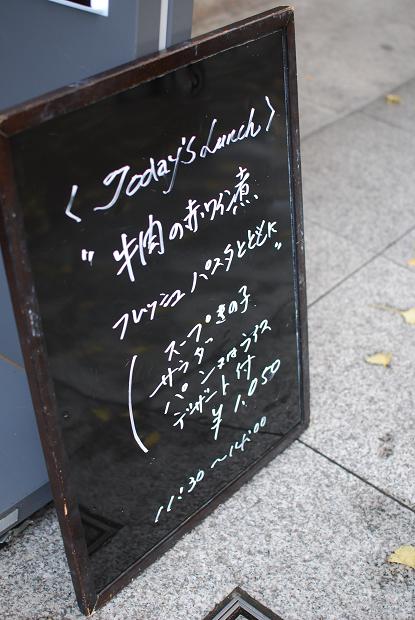 〈Today's Lunch〉
"牛肉の赤ワイン煮
フレッシュパスタとともに"
スープ
サラダ
パン又はライス
デザート付
¥1,050
11:30〜14:00